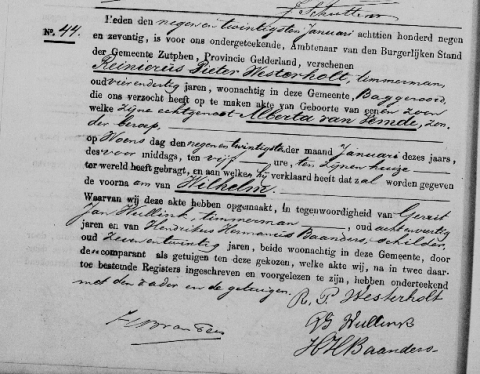 J. Schutten
No. 44.
Heden den negen en twintigsten Januari achttien honderd negen
en zeventig, is voor ons ondergeteekende, Ambtenaar van den Burgerlijken Stand
der Gemeente Zutphen, Provincie Gelderland, verschenen
Reinierus Pieter Westerholt, timmerman,
oud vier en dertig jaren, woonachtig in deze Gemeente,
die ons verzocht heeft op te maken akte van Geboorte van eenen zoon
welke zijne echtgenoot Alberta van Zemde, zon,
der beroep.
op Woensdag den negen en twintigsten der maand Januari dezes jaars,
des voor middags, ten vijf ure, ten zijnen huize
ter wereld heeft gebragt, en aan welke hij verklaard heeft dat zal worden gegeven
de voorna am van Wilhelm.
Waarvan wij deze akte hebben opgemaakt, in tegenwoordigheid van Gerrit
Jan Wullink, timmerman, oud acht en veertig
jaren en van Hendrikus Hermanus Baanders, schilder,
oud zeven en twintig jaren, beide woonachtig in deze Gemeente, door
den comparant als getuigen ten deze gekozen, welke akte wij, na in twee daar-
toe bestemde Registers ingeschreven en voorgelezen te zijn, hebben onderteekend
met den vader en de getuigen.
R. P. Westerholt
GJ Wullink
HHBaanders